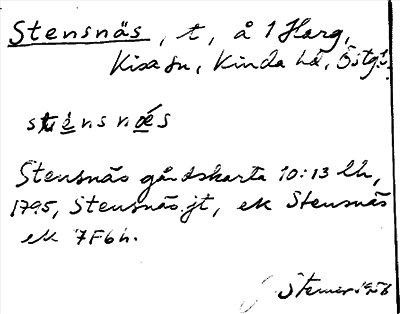 Stensnäs, t, å 1 Harg,
Kisa sn, Kinda hd, Östgl.
sténsnæs
Stensnäs gårdskarta 10:13 Lh,
1795, Stensnäs jt, ek Stensnäs
ek 7F6h.